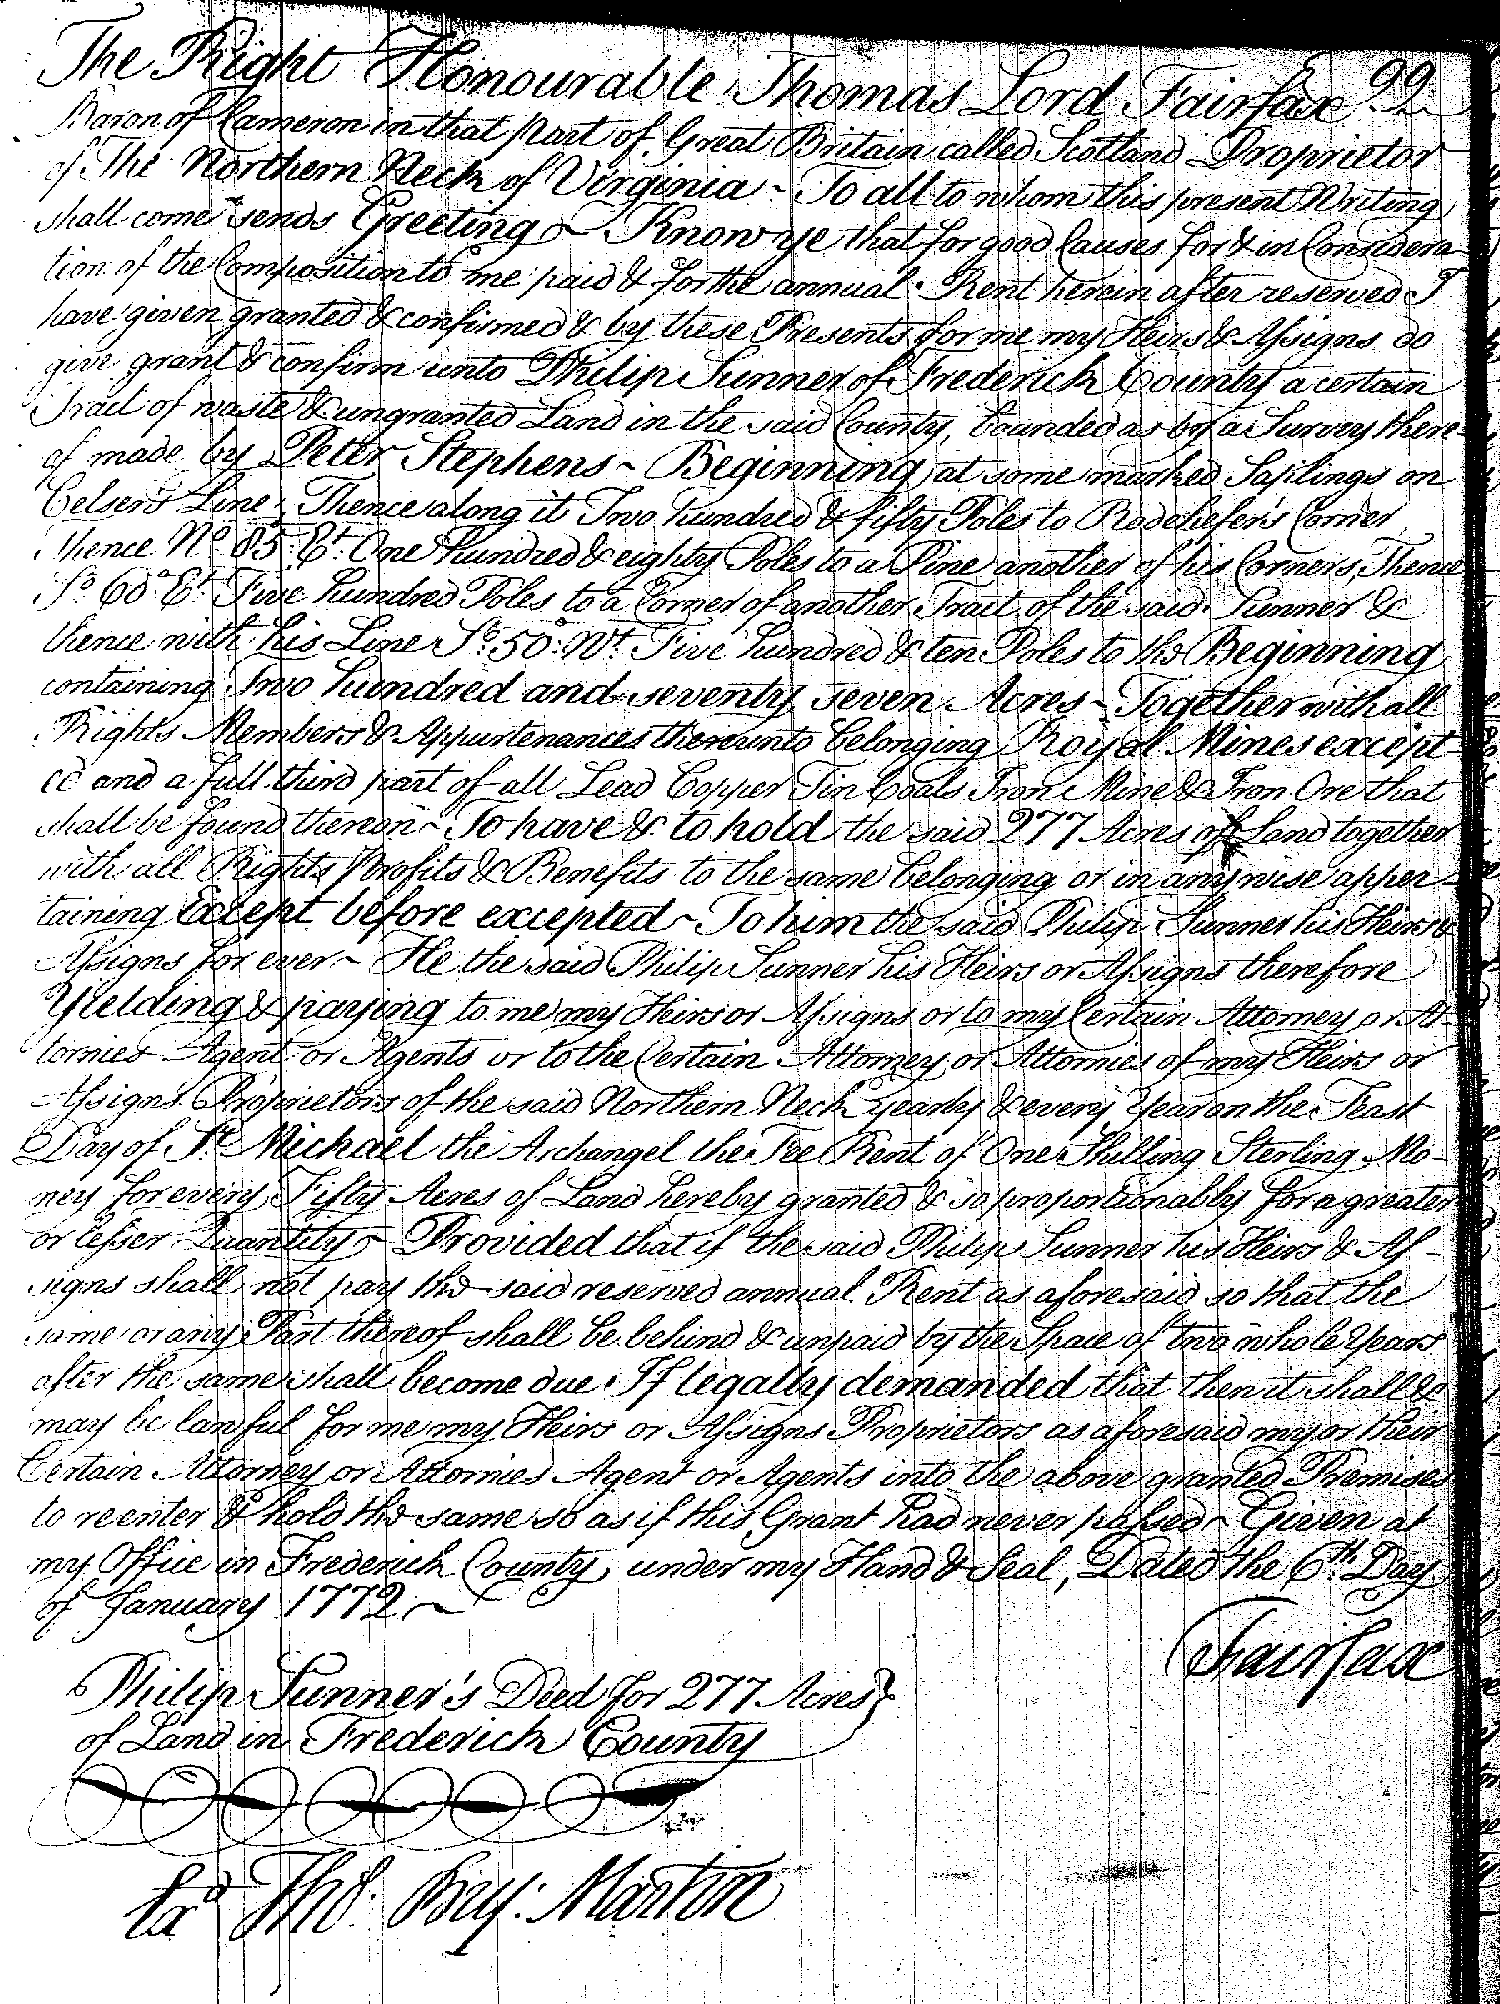 The Right Honourable Thomas Lord Fairfax 99
Baron of Cameron in that part of Great Britain called Scotland Proprietor
of The Northern Neck of Virginia ~ To all to whom this present Writing
shall come sends Greeting ~ Know ye that for good Causes for & in Considera-
tion of the Composition to me paid & for the annual Rent herein after reserved I
have given granted & confirmed & by these Presents for me my Heirs & Assigns do
give grant & confirm unto Philip Sunner of Frederick County a certain
Tract of waste & ungranted Land in the said County, bounded as by a Survey there-
of made by Peter Stephens ~ Beginning at some marked Saplings on
Celser's Line; Thence along it Two hundred & fifty Poles to Corner
Thence No. 85°. Et. One hundred & eighty Poles to a Pine another of his Corners, Thence
So. 60° Et. Five hundred Poles to a Corner of another Tract of the said Sunner &
thence with his Line So. 50°. Wt. Five hundred & ten Poles to the Beginning
containing Two hundred and seventy seven Acres ~ Together with all
Rights Members & Appurtenances thereunto belonging Royal Mines except-
ed and a full third part of all Lead Copper Tin Coals Iron Mine & Iron Ore that
shall be found thereon ~ To have & to hold the said 277 Acres of Land together
with all Rights Profits & Benefits to the same belonging or in any wise apper-
taining Except before excepted ~ To him the said Philip Sunner his Heirs &
Assigns for ever ~ He the said Philip Sunner his Heirs or Assigns therefore
Yielding & paying to me my Heirs or Assigns or to my Certain Attorney or At-
tornies Agent or Agents or to the Certain Attorney or Attornies of my Heirs or
Assigns Proprietors of the said Northern Neck yearly & every Year on the Feast
Day of St. Michael the Archangel the Fee Rent of One Shilling Sterling Mo-
ney for every Fifty Acres of Land hereby granted & so proportionably for a greater
or lesser Quantity ~ Provided that if the said Philip Sunner his Heirs & As-
signs shall not pay the said reserved annual Rent as aforesaid so that the
same or any Part thereof shall be behind & unpaid by the Space of two whole Years
after the same shall become due If legally demanded that then it shall &
may be lawful for me my Heirs or Assigns Proprietors as aforesaid my or their
Certain Attorney or Attornies Agent or Agents into the above granted Premises
to reenter & hold the same so as if this Grant had never passed ~ Given at
my Office in Frederick County under my Hand & Seal, Dated the 6th. Day
of January 1772 ~
Fairfax
Philip Sunner's Deed for 277 Acres
of Land in Frederick County
Exd Thos. Bry: Martin